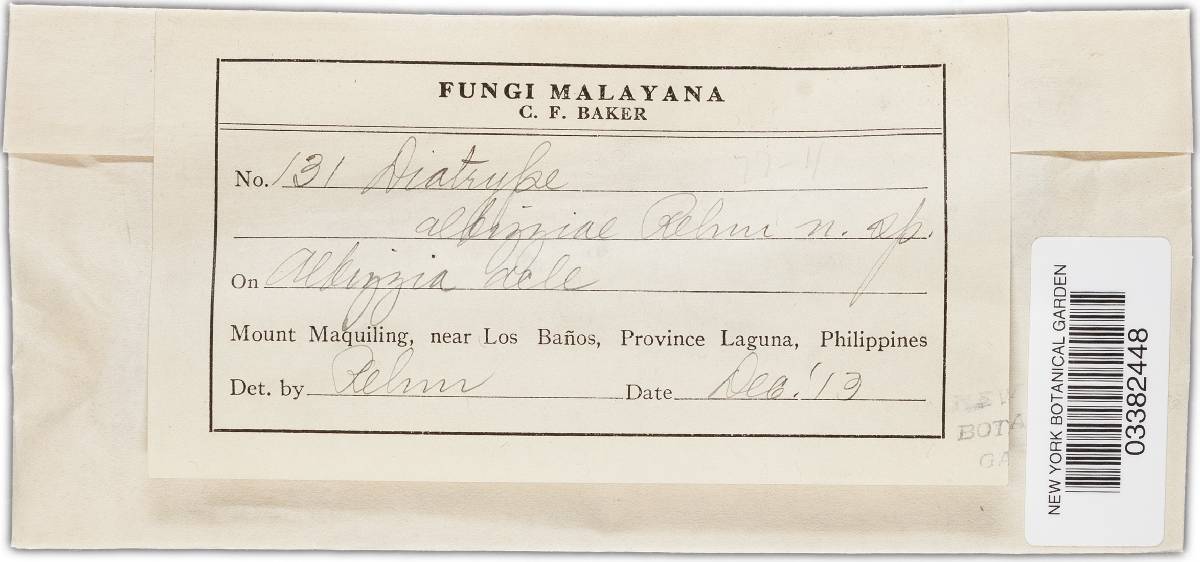 FUNGI MALAYANA
C. F. BAKER
No. 131 Diatrype
albizziae Rehm n. sp.
On Albizzia acle
Mount Maquiling, near Los Baños, Province Laguna, Philippines
Det. by Rehm Date Dec. '13
NEW
BOTA
GA
NEW YORK BOTANICAL GARDEN
03382448